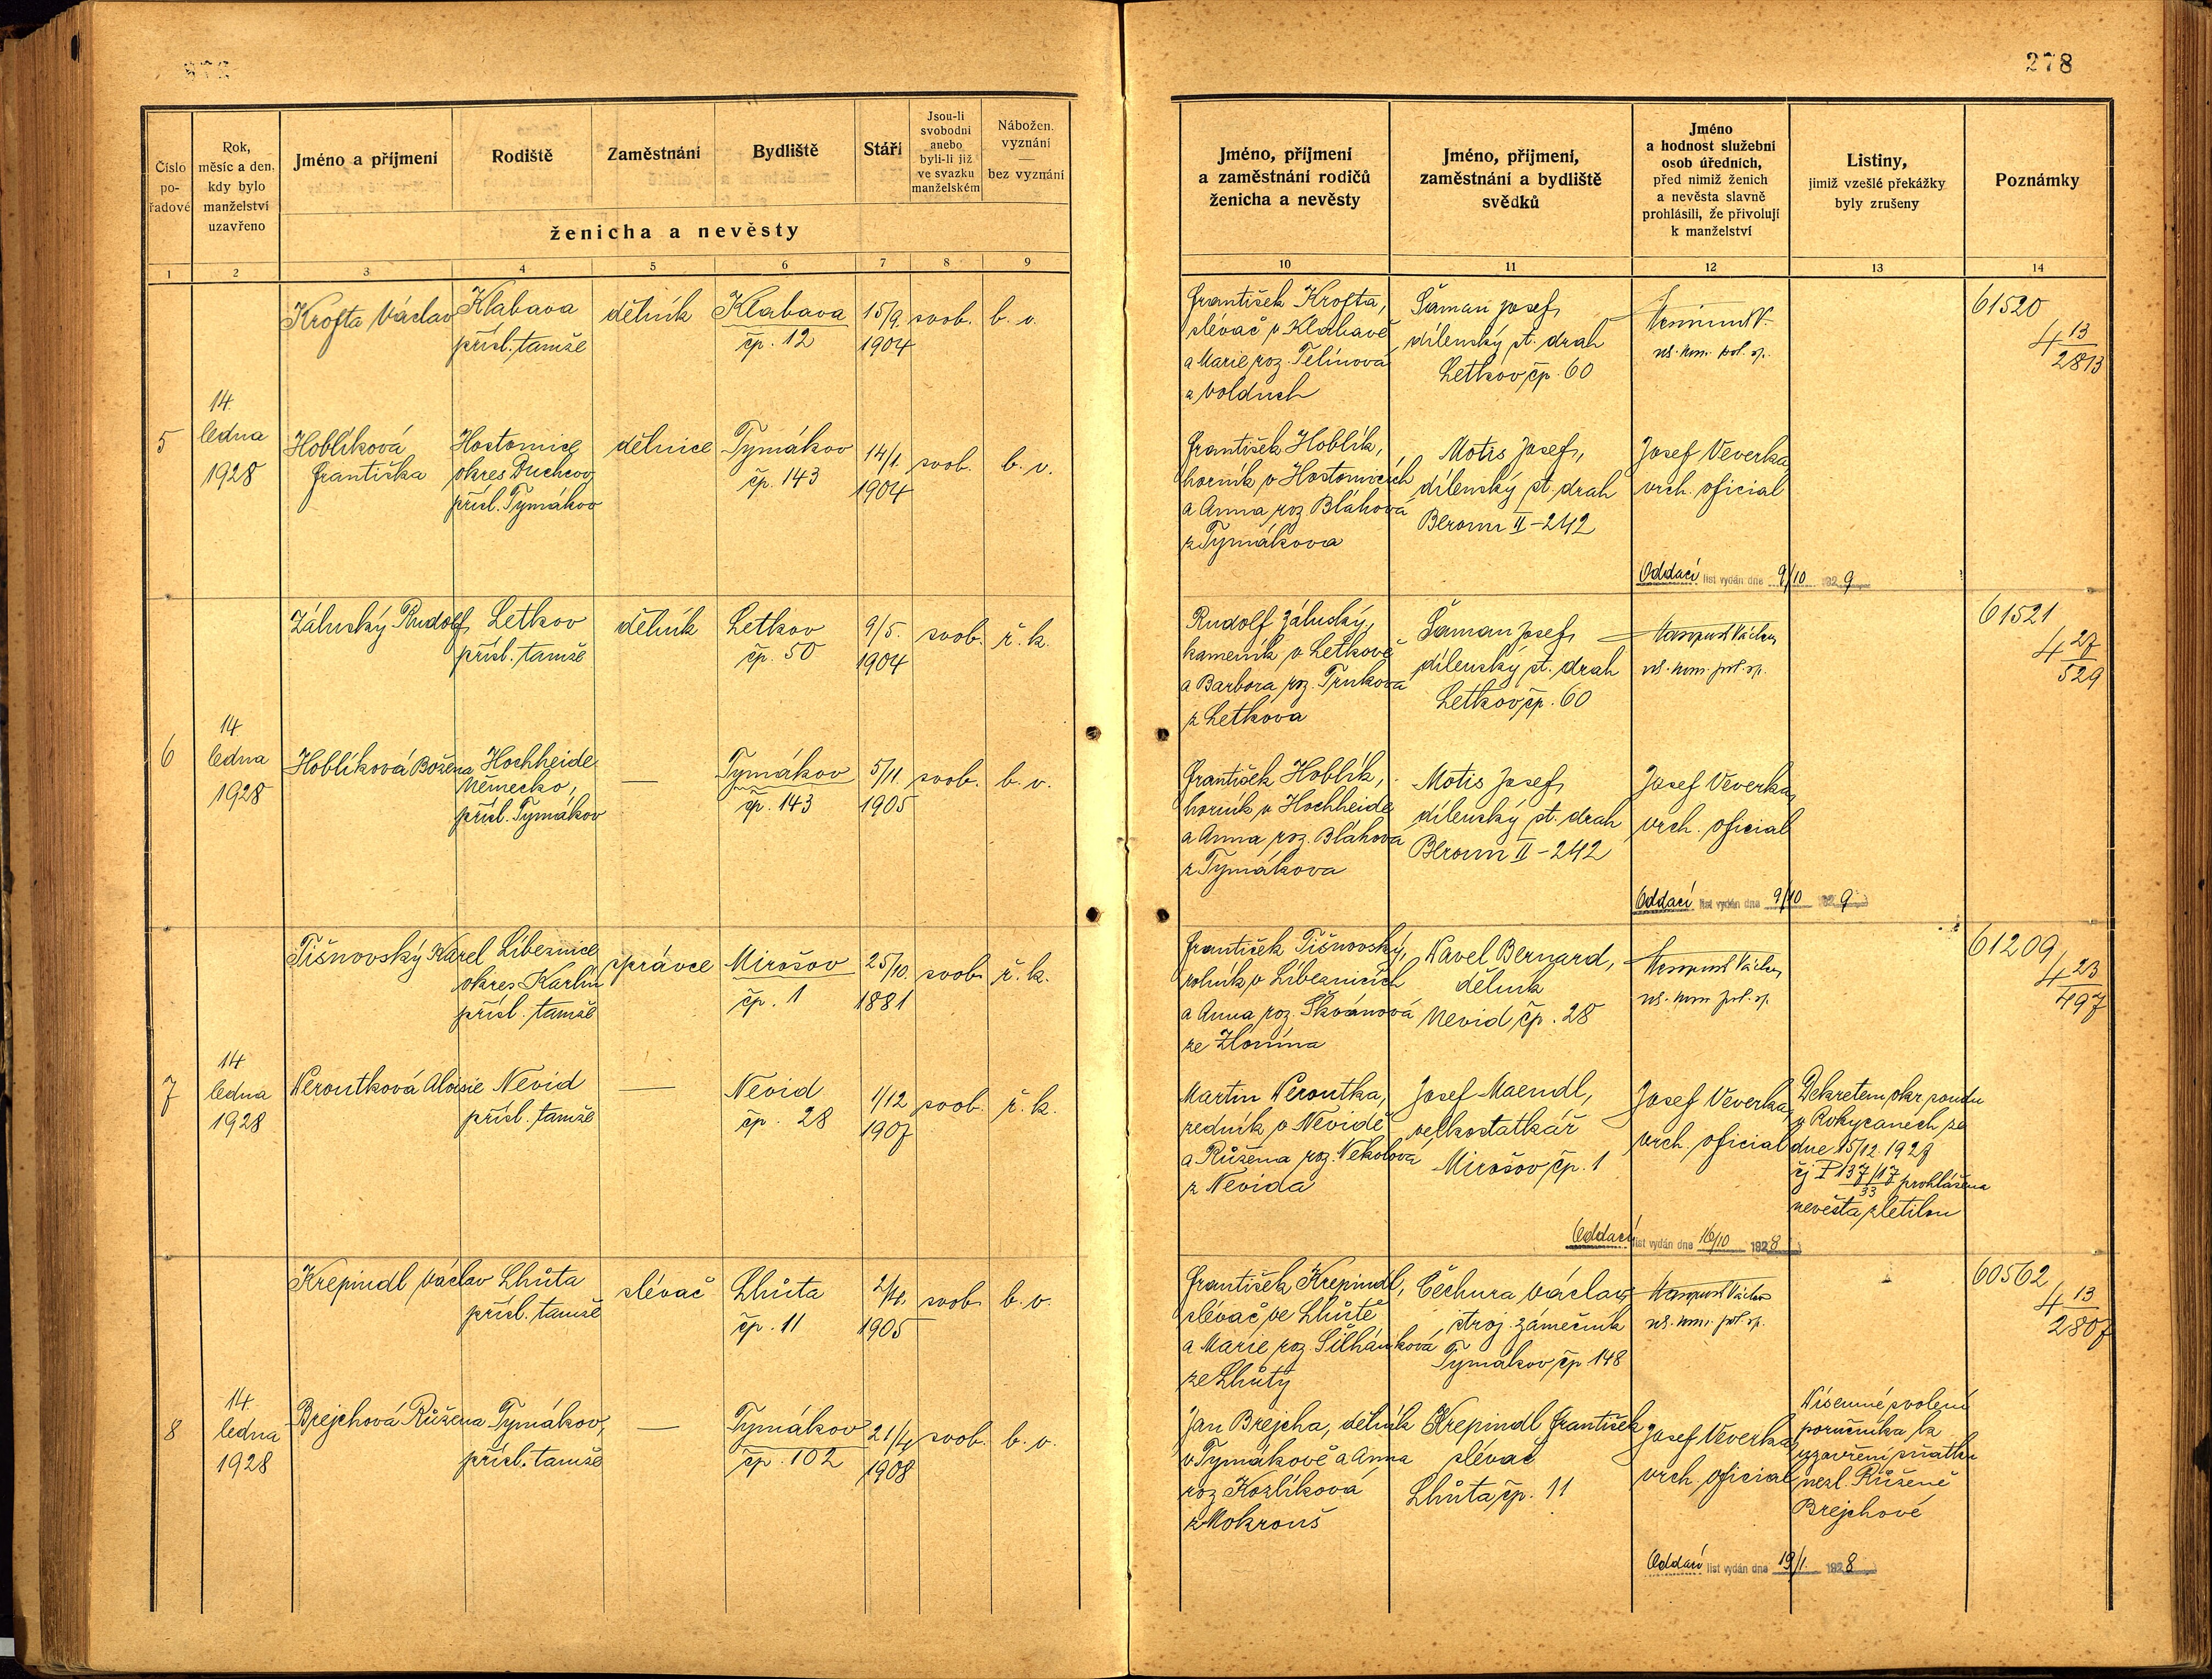 278
Číslo pořadové
Rok, měsíc a den, kdy bylo manželství uzavřeno
Jméno a příjmení
Rodiště
Zaměstnání
Bydliště
Stáří
Jsou-li svobodni anebo byli-li již ve svazku manželském
Nábožen. vyznání — bez vyznání
ženicha a nevěsty
1 2 3 4 5 6 7 8 9
Jméno, příjmení a zaměstnání rodičů ženicha a nevěsty
Jméno, příjmení, zaměstnání a bydliště svědků
Jméno a hodnost služební osob úředních, před nimiž ženich a nevěsta slavně prohlásili, že přivolují k manželství
Listiny, jimiž vzešlé překážky byly zrušeny
Poznámky
10 11 12 13 14
5
14.
ledna
1928
Krofta Václav
Klabava
přísl. tamže
dělník
Klabava
čp. 12
15/9.
1904
svob.
b. v.
František Krofta,
slévač v Klabavě
a Marie roz. Telínová
z Volduch
Šaman Josef,
dílenský st. drah
Letkov čp. 60
61520
4 13
2813
Hoblíková
Františka
Hostomice,
okres Duchcov,
přísl. Tymákov
dělnice
Tymákov
čp. 143
14/1.
1904
svob.
b. v.
František Hoblík,
horník v Hostomicích
a Anna roz. Bláhová
z Tymákova
Motis Josef,
dílenský st. drah
Beroun II-242
Josef Veverka,
vrch. oficial
Oddací list vydán dne 9/10 1929
6
14.
ledna
1928
Záluský Rudolf,
Letkov
přísl. tamže
dělník
Letkov
čp. 50
9/5.
1904
svob.
ř. k.
Rudolf Záluský,
kameník v Letkově
a Barbora roz. Trnková
z Letkova
Šaman Josef,
dílenský st. drah
Letkov čp. 60
61521
4 27
529
Hoblíková Božena
Hochheide
Německo,
přísl. Tymákov
—
Tymákov
čp. 143
5/11.
1905
svob.
b. v.
František Hoblík,
horník v Hochheide
a Anna roz. Bláhová
z Tymákova
Motis Josef,
dílenský st. drah
Beroun II-242
Josef Veverka,
vrch. oficial
Oddací list vydán dne 9/10 1929
7
14
ledna
1928
Tišnovský Karel
Líbeznice,
okres Karlín
přísl. tamže
správce
Mirošov
čp. 1
25/10.
1881
svob.
ř. k.
František Tišnovský,
rolník v Líbeznicích
a Anna roz. Škvánová
ze Zlonína
Navel Bernard,
dělník
Nevid čp. 28
61209
4 23
497
Neroutková Aloisie
Nevid
přísl. tamže
—
Nevid
čp. 28
1/12
1907
svob.
ř. k.
Martin Neroutka,
zedník v Nevidě
a Růžena roz. Nekolová
z Nevida
Josef Maendl,
velkostatkář
Mirošov čp. 1
Josef Veverka,
vrch. oficial
Dekretem okr. soudu
v Rokycanech ze
dne 15/12. 1927
čj P 137/17 prohlášena
33
nevěsta zletilou
Oddací list vydán dne 16/10 1928
8
14.
ledna
1928
Krepindl Václav
Lhůta
přísl. tamže
slévač
Lhůta
čp. 11
2/4.
1905
svob.
b. v.
František Krepindl,
slévač ve Lhůtě
a Marie roz. Šilhánková
ze Lhůty
Čechura Václav,
stroj. zámečník
Tymákov čp 148
60562
4 13
2807
Brejchová Růžena
Tymákov,
přísl. tamže
—
Tymákov
čp. 102
21/4
1908
svob.
b. v.
Jan Brejcha, dělník
v Tymákově a Anna
roz. Kozlíková
z Mokrouš
Krepindl František
slévač
Lhůta čp. 11
Josef Veverka,
vrch. oficial
Písemné svolení
poručníka k
uzavření sňatku
nezl. Růženě
Brejchové
Oddací list vydán dne 19/1. 1928